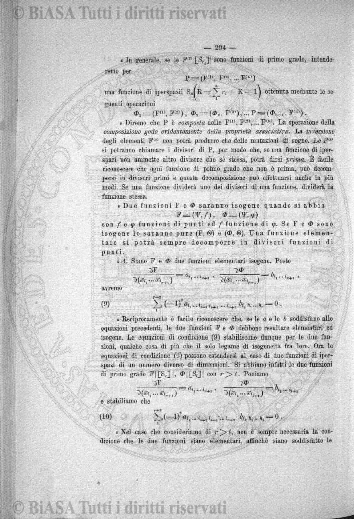 © BiASA Tutti i diritti riservati
— 294 —
« In generale, se le F⁽ⁱ⁾ |[Sᵣ]| sono funzioni di primo grado, intende-
remo per
P = (F⁽¹⁾, F⁽²⁾, ... F⁽ⁿ⁾)
una funzione di iperspazii ottenuta mediante le se-
guenti operazioni
« Diremo che P è composta colle F⁽¹⁾, F⁽²⁾, ... F⁽ⁿ⁾. La operazione della
composizione gode evidentemente della proprietà associativa. La inversione
degli elementi F⁽ⁱ⁾ non potrà produrre che delle mutazioni di segno. Le F⁽ⁱ⁾
si potranno chiamare i divisori di P, per modo che, se una funzione di iper-
spazi non ammette altro divisore che sè stessa, potrà dirsi prima. È facile
riconoscere che ogni funzione di primo grado che non è prima, può decom-
porsi in divisori primi e questa decomposizione può effettuarsi anche in più
modi. Se una funzione dividerà uno dei divisori di una funzione, dividerà la
funzione stessa.
« Due funzioni F e Φ saranno isogene quando si abbia
F = (Ψ, f) , Φ = (Ψ, φ)
con f e φ funzioni di punti ed f funzione di φ. Se F e Φ sono
isogene le saranno pure (F, Θ) e (Φ, Θ). Una funzione elemen-
tare si potrà sempre decomporre in divisori funzioni di
punti.
« 4. Siano F e Φ due funzioni elementari isogene. Posto
avremo
(9)
« Reciprocamente è facile riconoscere che, se le a e le b soddisfano alle
equazioni precedenti, le due funzioni F e Φ debbono resultare elementari ed
isogene. Le equazioni di condizione (9) stabiliscono dunque per le due fun-
zioni, qualche cosa di più che il solo legame di isogeneità fra loro. Ora le
equazioni di condizione (9) possono estendersi al caso di due funzioni di iper-
spazi di un numero diverso di dimensioni. Si abbiano infatti le due funzioni
di primo grado F |[Sᵣ]| , Φ |[Sₜ]| con r > t. Poniamo
e stabiliamo che
(10)
« Nel caso che consideriamo di r > t, non è sempre necessaria la con-
dizione che le due funzioni siano elementari, affinchè siano soddisfatte le
© BiASA Tutti i diritti riservati